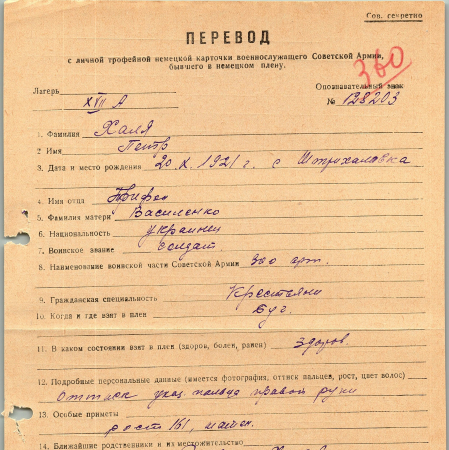 Сов. секретно
ПЕРЕВОД
с личной трофейной немецкой карточки военнослужащего Советской Армии,
бывшего в немецком плену.
360
Лагерь
Опознавательный знак
XVII A
№ 128203
1. Фамилия Халя
2 Имя Петро
3. Дата и место рождения 20 X. 1921 г. с Штихаловка
4. Имя отца Трифон
5. Фамилия матери Василенко
6. Национальность украинец
7. Воинское звание солдат
8. Наименование воинской части Советской Армии 360 арт.
9. Гражданская специальность Крестьянин
10. Когда и где взят в плен Буг.
11. В каком состоянии взят в плен (здоров, болен, ранен) здоров.
12. Подробные персональные данные (имеется фотография, оттиск пальцев, рост, цвет волос)
Оттиск указ. пальца правой руки
13. Особые приметы
рост 161,
14. Ближайшие родственники и их местожительство